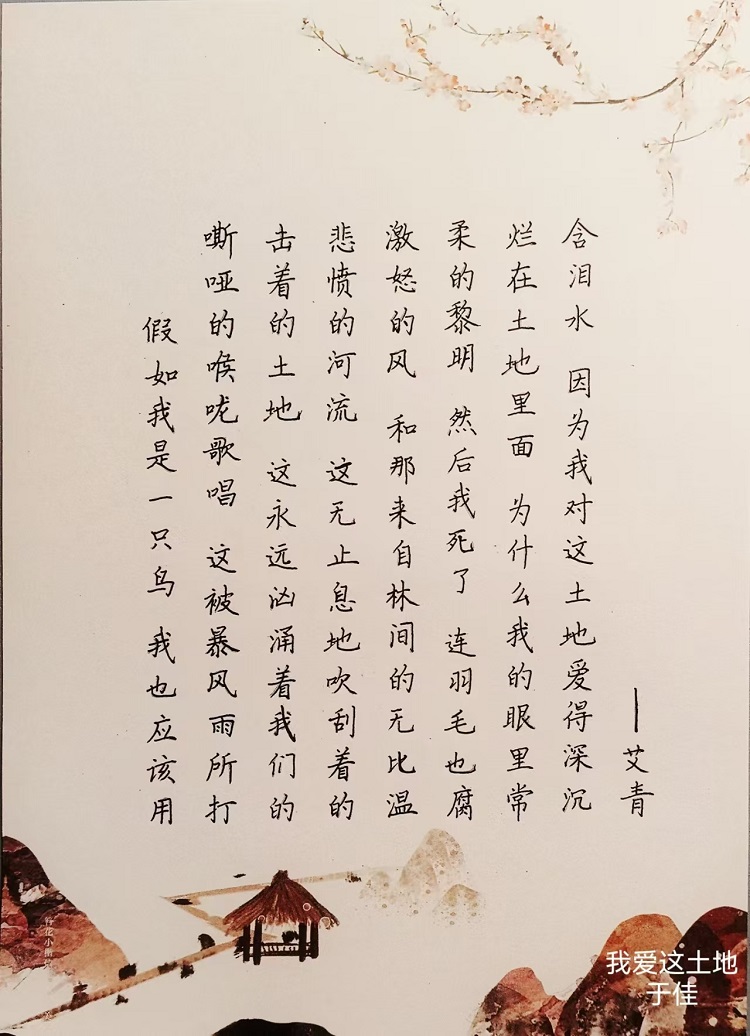 假如我是一只鸟 我也应该用
嘶哑的喉咙歌唱 这被暴风雨所打
击着的土地 这永远汹涌着我们的
悲愤的河流 这无止息地吹刮着的
激怒的风 和那来自林间的无比温
柔的黎明 然后我死了 连羽毛也腐
烂在土地里面 为什么我的眼里常
含泪水 因为我对这土地爱得深沉
——艾青
我爱这土地
于佳